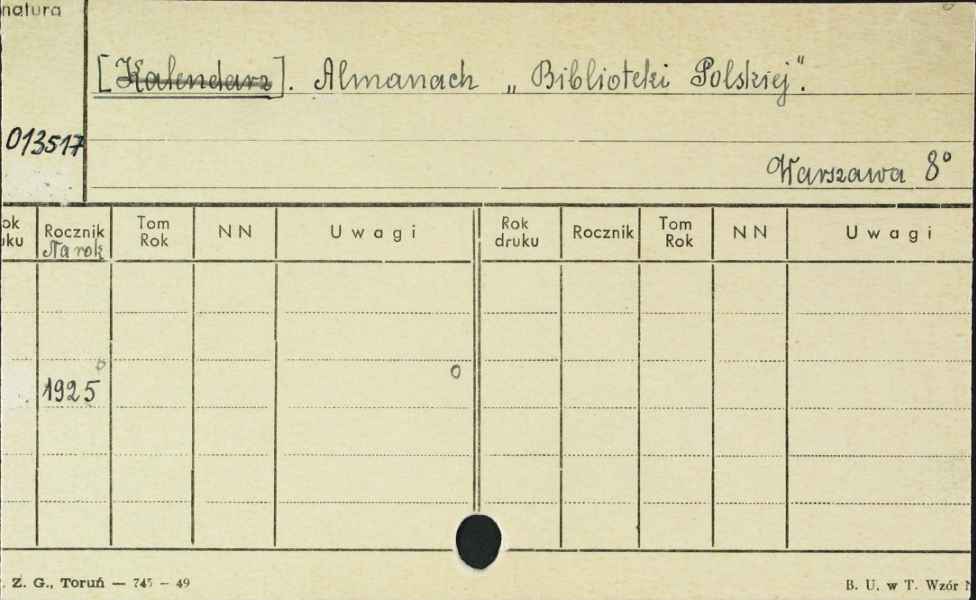 natura
[Kalendarz]. Almanach „Biblioteki Polskiej".
013517
Warszawa 8°
Rocznik Tom NN Uwagi Rok Rocznik Tom NN Uwagi
Na rok Rok druku Rok
1925
Z. G., Toruń — 745 — 49
B. U. w T. Wzór